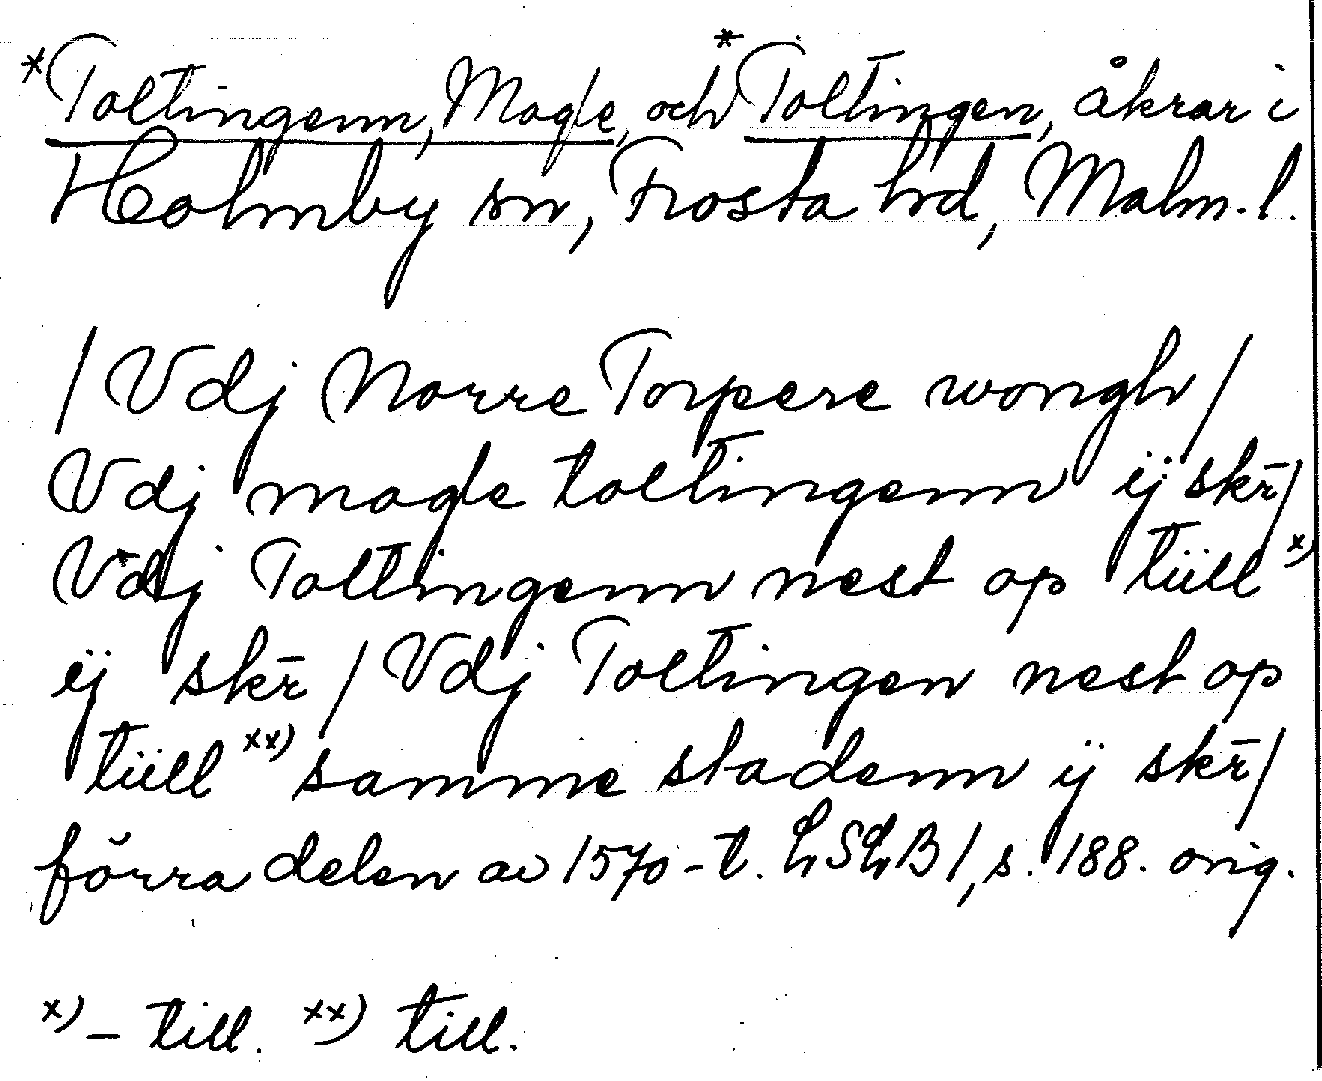 *Toltingenn, Magle, och *Toltingen, åkrar i
Holmby sn, Frosta hd, Malm. l.
/ Vdj Norre Torpere wongh /
Vdj magle toltingenn ij skr̄ /
Vdj Toltingenn nest op tiill x)
ij skr̄ / Vdj Toltingen nest op
tiill xx) samme stadenn ij skr̄ /
förra delen av 1570-t. LSLB 1, s. 188. orig.
x) – till. xx) till.